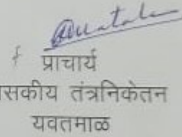 प्राचार्य
सकीय तंत्रनिकेतन
यवतमाळ